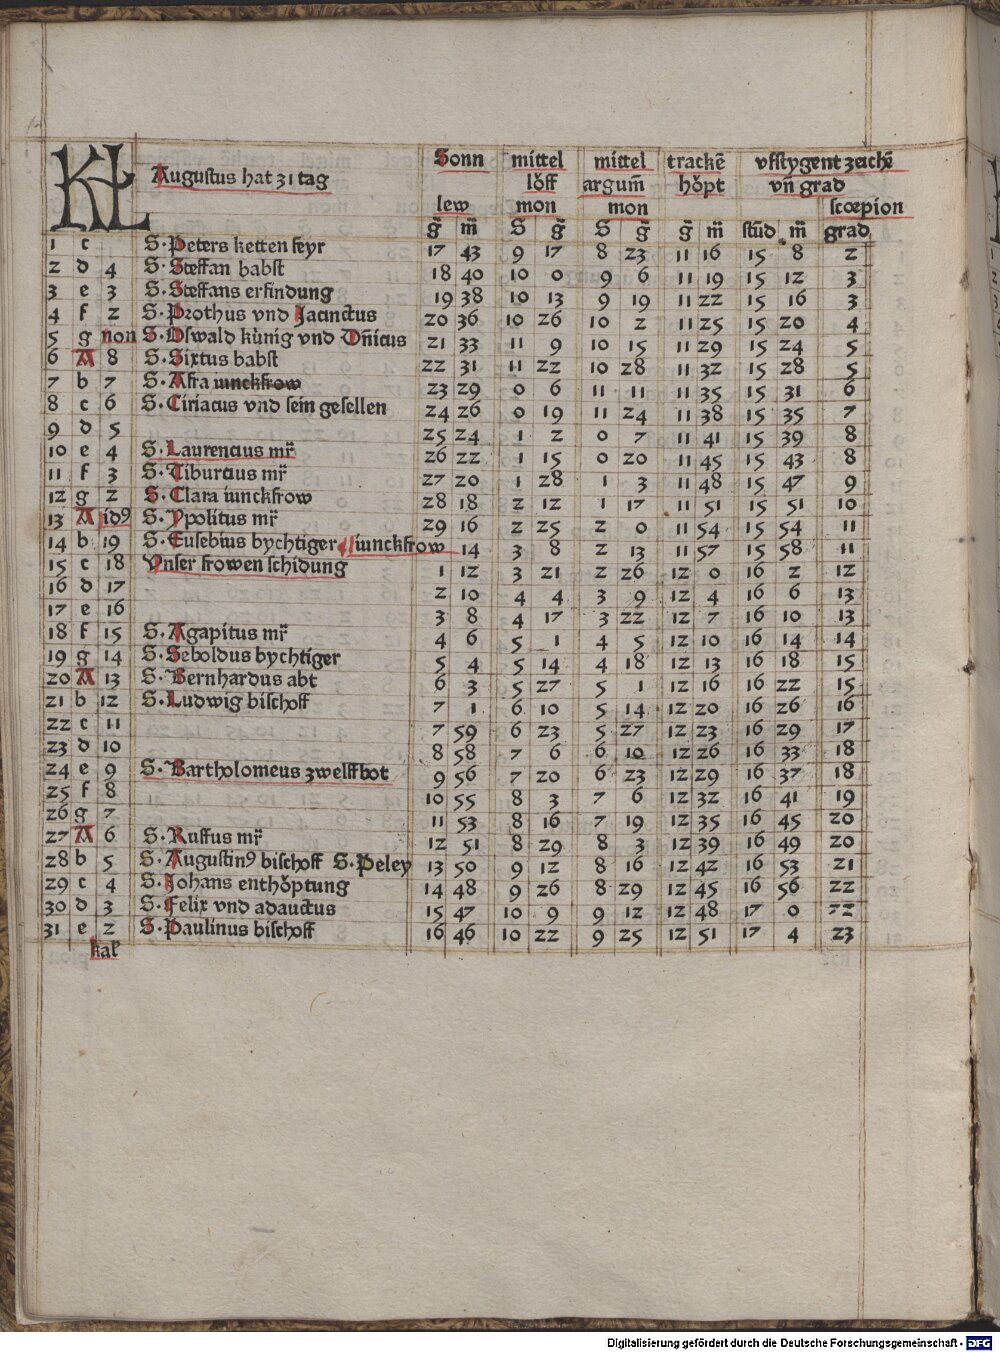 KL Augustus hat 31 tag Sonn mittel mittel trackē vfstygent zeichē
lӧff argum̄ hӧpt vn̄ grad
lew mon mon scorpion
g̃ m̃ S g̃ S g̃ g̃ m̃ stūd m̃ grad
1 c S. Peters ketten feyr 17 43 9 17 8 23 11 16 15 8 2
2 d 4 S. Steffan babst 18 40 10 0 9 6 11 19 15 12 3
3 e 3 S. Steffans erfindung 19 38 10 13 9 19 11 22 15 16 3
4 f 2 S. Prothus vnd Jacinctus 20 36 10 26 10 2 11 25 15 20 4
5 g non S. Oswald kůnig vnd Dn̄icus 21 33 11 9 10 15 11 29 15 24 5
6 A 8 S. Sixtus babst 22 31 11 22 10 28 11 32 15 28 5
7 b 7 S. Afra iunckfrow 23 29 0 6 11 11 11 35 15 31 6
8 c 6 S. Ciriacus vnd sein gesellen 24 26 0 19 11 24 11 38 15 35 7
9 d 5 25 24 1 2 0 7 11 41 15 39 8
10 e 4 S. Laurencius mr̃ 26 22 1 15 0 20 11 45 15 43 8
11 f 3 S. Tiburcius mr̃ 27 20 1 28 1 3 11 48 15 47 9
12 g 2 S. Clara iunckfrow 28 18 2 12 1 17 11 51 15 51 10
13 A idꝰ S. Ypolitus mr̃ 29 16 2 25 2 0 11 54 15 54 11
14 b 19 S. Eusebius bychtiger iunckfrow 14 3 8 2 13 11 57 15 58 11
15 c 18 Vnser frowen schidung 1 12 3 21 2 26 12 0 16 2 12
16 d 17 2 10 4 4 3 9 12 4 16 6 13
17 e 16 3 8 4 17 3 22 12 7 16 10 13
18 f 15 S. Agapitus mr̃ 4 6 5 1 4 5 12 10 16 14 14
19 g 14 S. Seboldus bychtiger 5 4 5 14 4 18 12 13 16 18 15
20 A 13 S. Bernhardus abt 6 3 5 27 5 1 12 16 16 22 15
21 b 12 S. Ludwig bischoff 7 1 6 10 5 14 12 20 16 26 16
22 c 11 7 59 6 23 5 27 12 23 16 29 17
23 d 10 8 58 7 6 6 10 12 26 16 33 18
24 e 9 S. Bartholomeus zwelffbot 9 56 7 20 6 23 12 29 16 37 18
25 f 8 10 55 8 3 7 6 12 32 16 41 19
26 g 7 11 53 8 16 7 19 12 35 16 45 20
27 A 6 S. Ruffus mr̃ 12 51 8 29 8 3 12 39 16 49 20
28 b 5 S. Augustinꝰ bischoff S. Peley 13 50 9 12 8 16 12 42 16 53 21
29 c 4 S. Johans enthӧptung 14 48 9 26 8 29 12 45 16 56 22
30 d 3 S. Felix vnd adauctus 15 47 10 9 9 12 12 48 17 0 22
31 e 2 S. Paulinus bischoff 16 46 10 22 9 25 12 51 17 4 23
kal̃
Digitalisierung gefördert durch die Deutsche Forschungsgemeinschaft - DFG